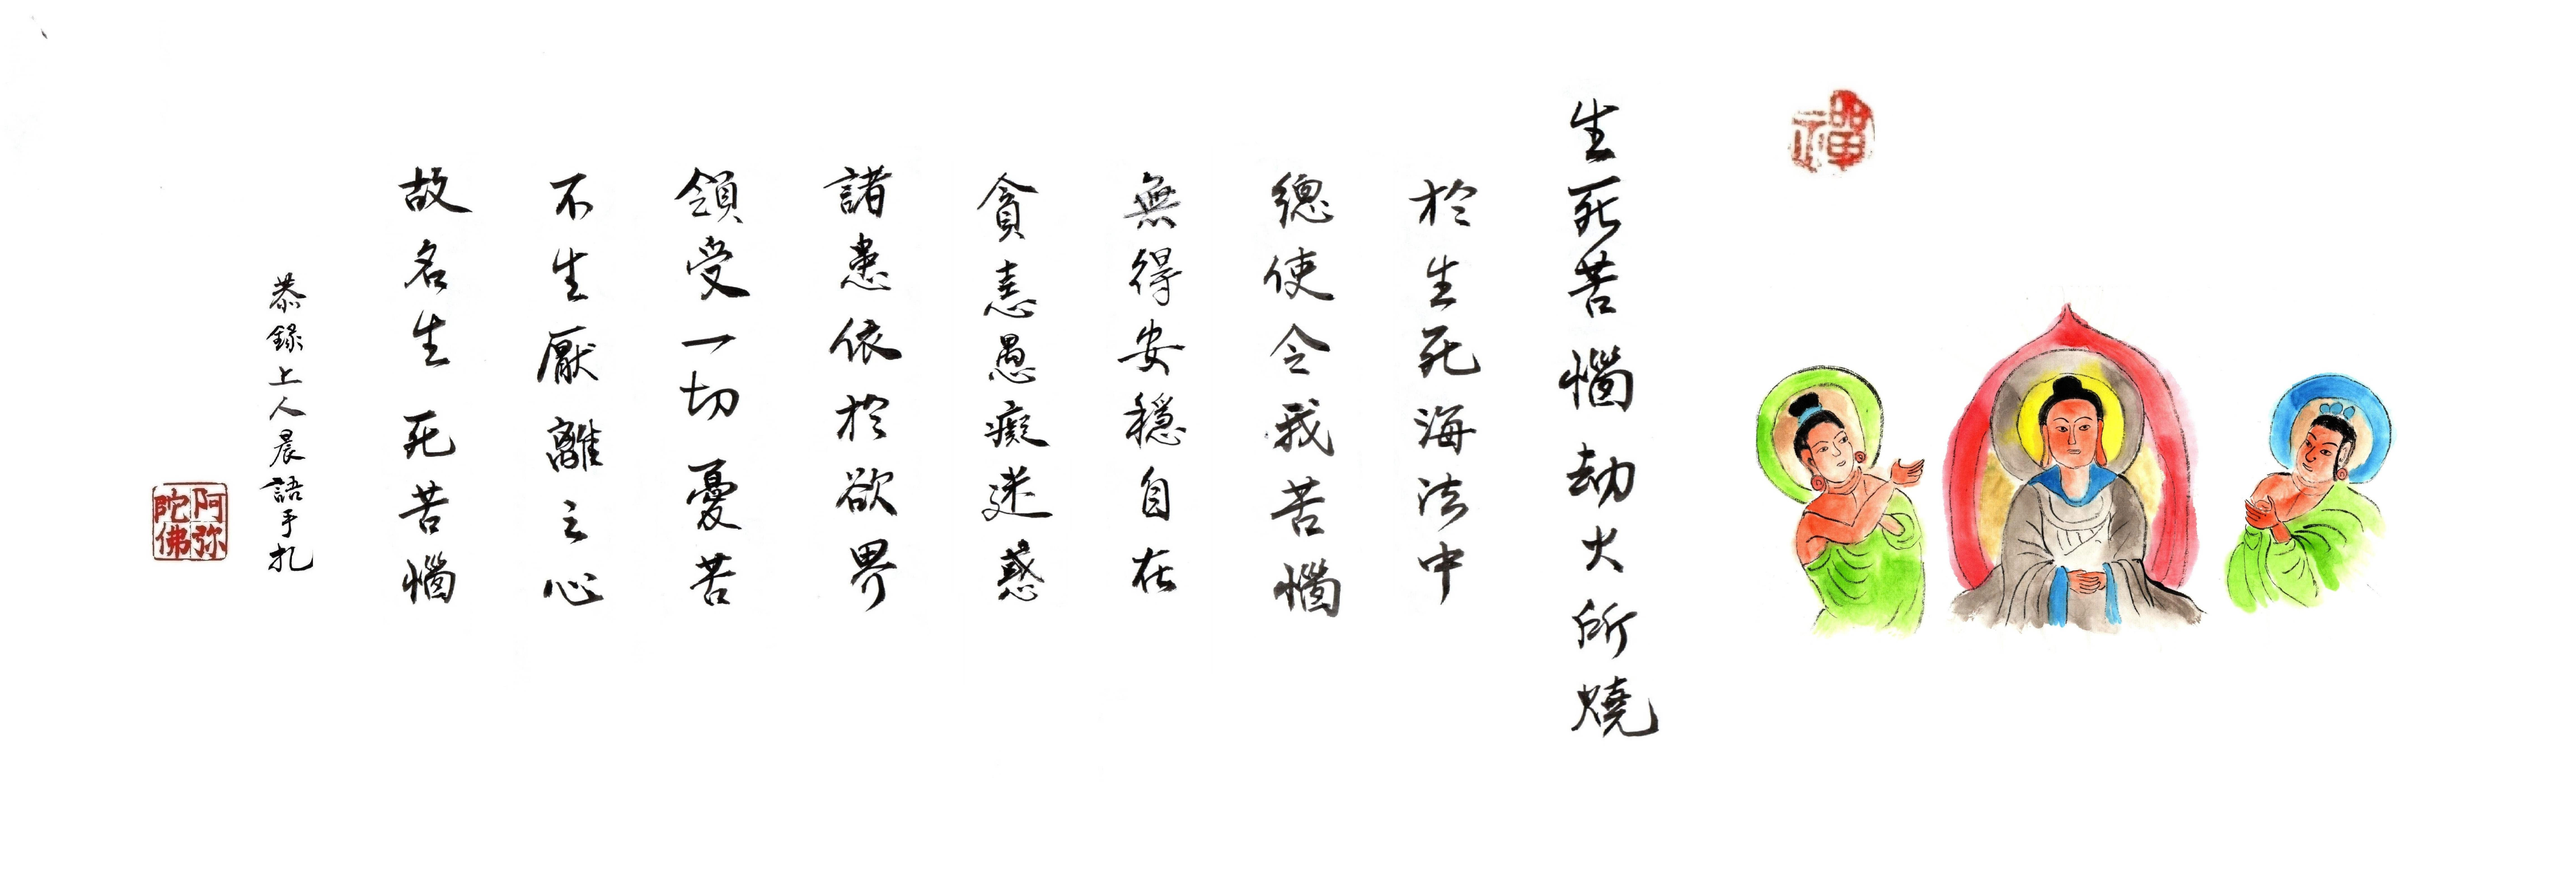 禪
生死苦惱劫火所燒
於生死海法中
總使令我苦惱
無得安穩自在
貪恚愚癡迷惑
諸患依於欲界
領受一切憂苦
不生厭離之心
故名生死苦惱
恭錄上人晨語手扎
阿弥
陀佛